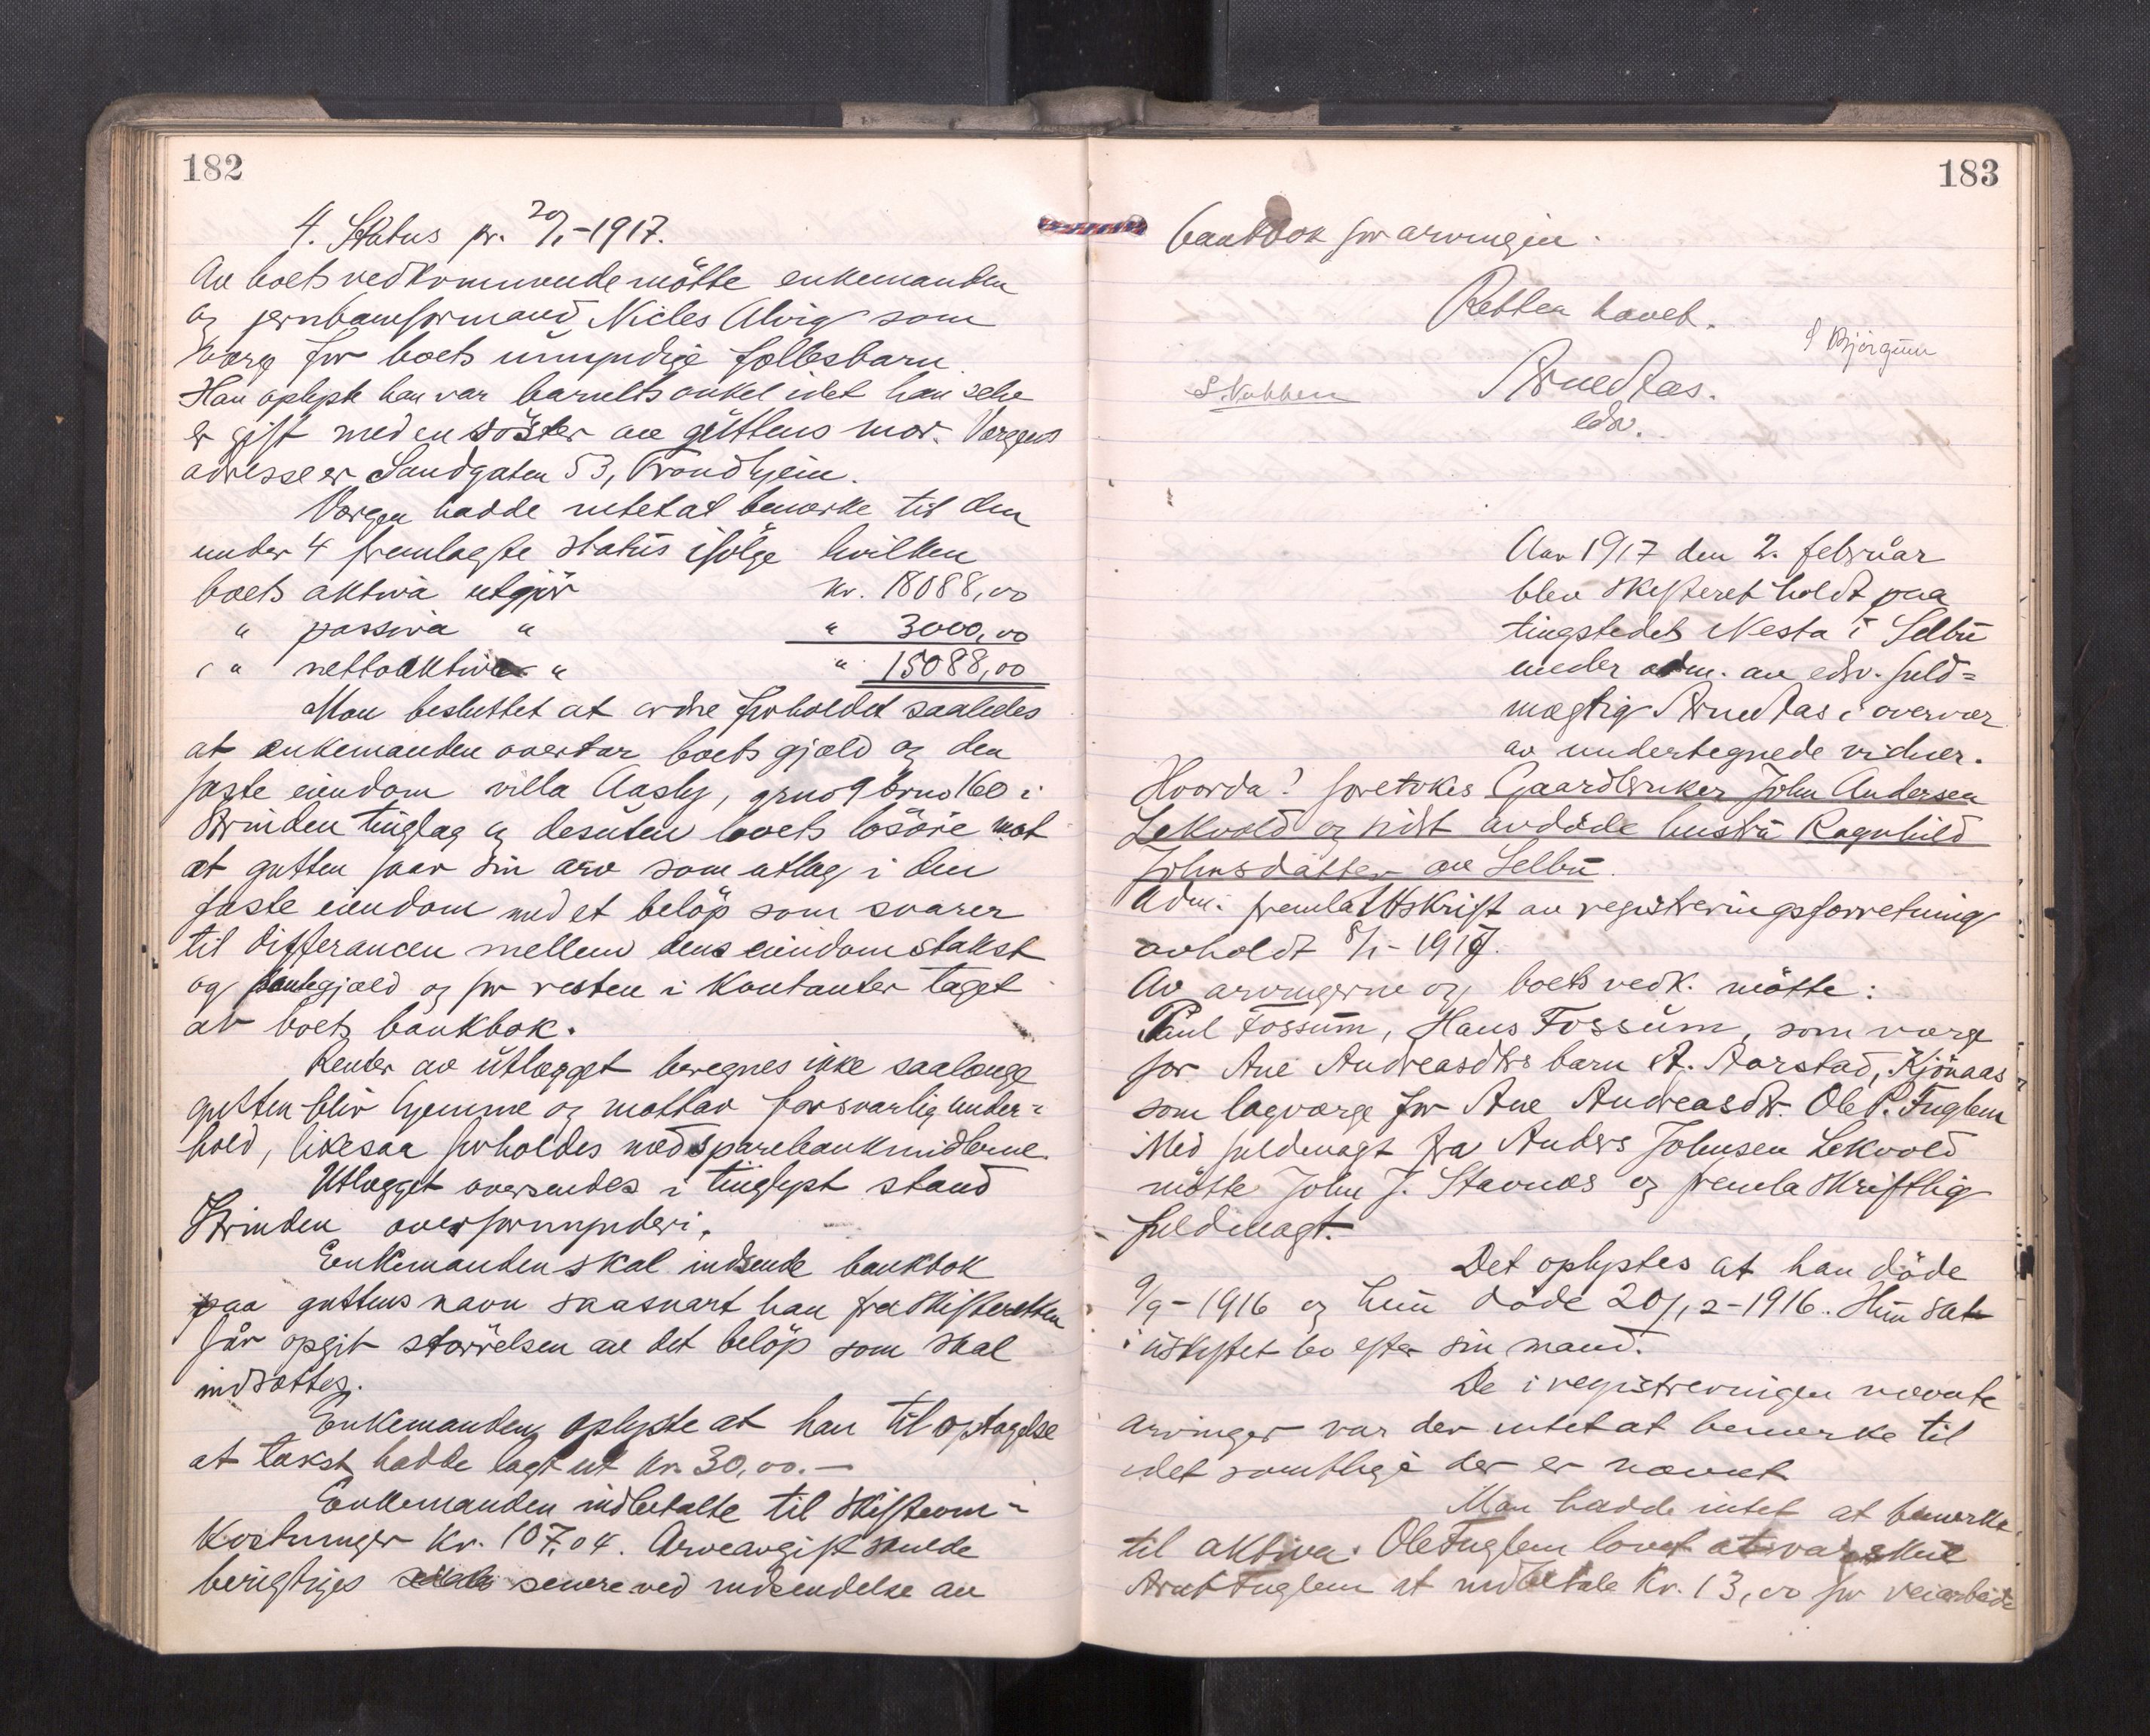 182
4. Status pr. 20/1-1917.
Av boets vedkommende mötte enkemanden
og jernbaneformand Nicles Alvig som
værge for boets umyndige fællesbarn.
Han oplyste han var barnets onkel idet han selv
er gift med en söster av guttens mor. Værgens
adresse er Sandgaten 53, Trondhjem.
Værgen hadde intet at bemerke til den
under 4 fremlagte status ifölge hvilken
boets aktiva utgjör kr. 18088,00
" passiva " " 3000,00
" nettoaktiva " " 15088,00
Man besluttet at ordne forholdet saaledes
at enkemanden overtar boets gjæld og den
faste eiendom villa Aasly, grno 9 brno 160 i
Strinden tinglag og desuten boets lösöre mot
at gutten faar sin arv som utlæg i den
faste eiendom med et belöp som svarer
til differancen mellem dens eiendomstakst
og pantegjæld og for resten i kontanter taget
av boets bankbok.
Renter av utlægget beregnes ikke saalænge
gutten blir hjemme og mottar forsvarlig under=
hold, likesaa forholdes med sparebankmidlerne.
Utlægget oversendes i tinglyst stand
Strinden overformynderi.
Enkemanden skal indsende bankbok
paa guttens navn saasnart han fra skifteretten
får opgit störrelsen av det belöp som skal
indsættes.
Enkemanden oplyste at han til optagelse
at takst hadde lagt ut kr. 30,00.-
Enkemanden indbetalte til skifteom-
kostninger kr. 107,04. Arveavgift skulde
berigtiges senere ved indsendelse av
183
bankbok for arvingen.
Retten hævet.
Björgum
S. Nubben
edsv.
Aar 1917 den 2. februar
blev skifteret holdt paa
tingstedet Nesta i Selbu
under adm. av edsv. fuld=
mægtig i overvær
av undertegnede vidner.
Hvorda! foretokes Gaardbruker John Andersen
Lekvold og sidst avdöde hustru Ragnhild
Johnsdatter av Selbu.
Adm. fremla utskrift av registreringsforretning
avholdt 8/1-1917.
Av arvingerne og boets vedk. mötte:
Paul Fossum, Hans Fossum, som værge
for Ane Andreasdtrs barn A. Aarstad, Kjönaas,
som lagværge for Ane Andreasdtr. Ole P. Fuglem
Med fuldmagt fra Anders Johnsen Lekvold
mötte John J. Stavnæs og fremla skriftlig
fuldmagt.
Det oplystes at han döde
9/9-1916 og hun döde 20/12-1916. Hun sat
i uskiftet bo efter sin mand.
De i registreringen nævnte
arvinger var der intet at bemerke til
idet samtlige der er nævnt
Man hadde intet at bemerke
til aktiva. Ole Fuglem lovet at
Arnt Fuglem at indbetale kr. 13,00 for veiarbeide